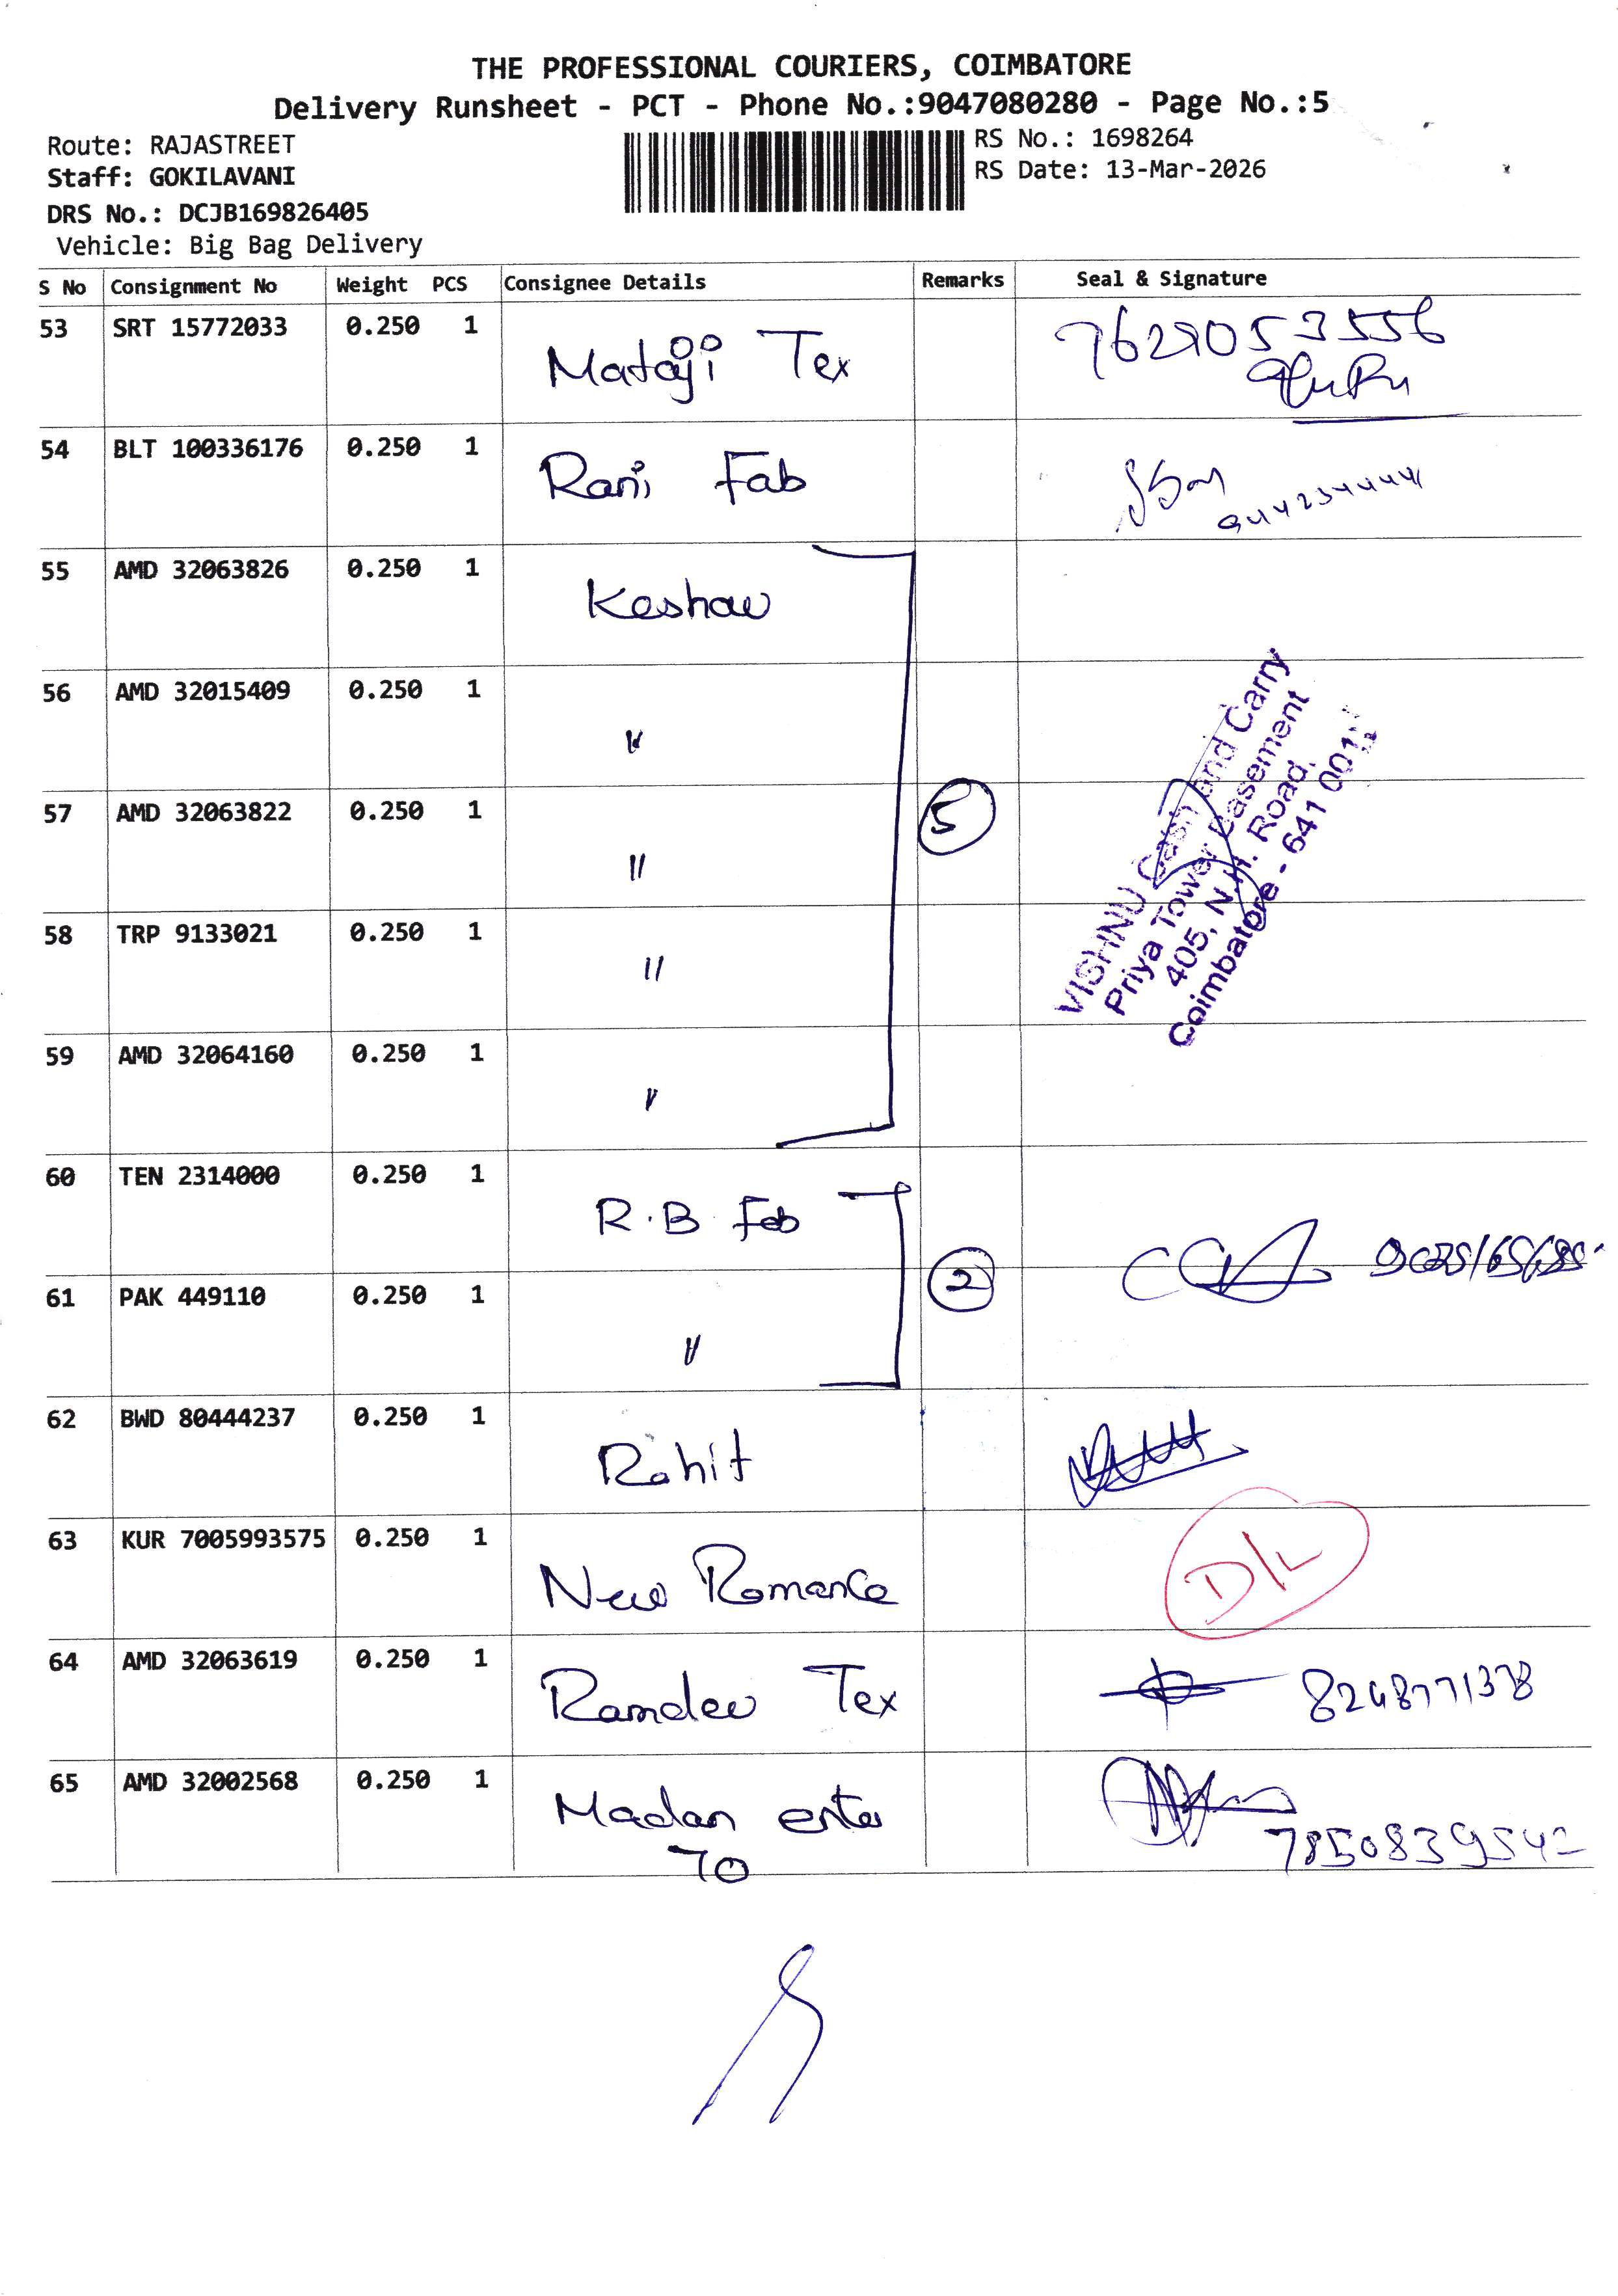 THE PROFESSIONAL COURIERS, COIMBATORE
Delivery Runsheet - PCT - Phone No.:9047080280 - Page No.:5
Route: RAJASTREET
RS No.: 1698264
Staff: GOKILAVANI
RS Date: 13-Mar-2026
DRS No.: DCJB169826405
Vehicle: Big Bag Delivery
S No Consignment No Weight PCS Consignee Details Remarks Seal & Signature
53 SRT 15772033 0.250 1 Mataji Tex
54 BLT 100336176 0.250 1 Rani Fab
55 AMD 32063826 0.250 1 Keshav
56 AMD 32015409 0.250 1 "
57 AMD 32063822 0.250 1 " 5
58 TRP 9133021 0.250 1 "
59 AMD 32064160 0.250 1 "
VISHNU Cash and Carry
Priya Tower Basement
405, N.H. Road,
Coimbatore - 641 001
60 TEN 2314000 0.250 1 R.B Fab
61 PAK 449110 0.250 1 " 2
62 BWD 80444237 0.250 1 Rohit
63 KUR 7005993575 0.250 1 New Romance D/L
64 AMD 32063619 0.250 1 Ramdev Tex 8248771378
65 AMD 32002568 0.250 1 Madan enter
70